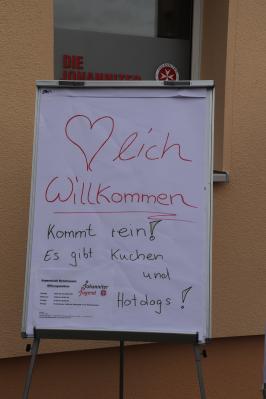 DIE
JOHANNITER
♡lich
Willkommen
Kommt rein!
Es gibt Kuchen
und
Hotdogs!
Johanniter
Jugend